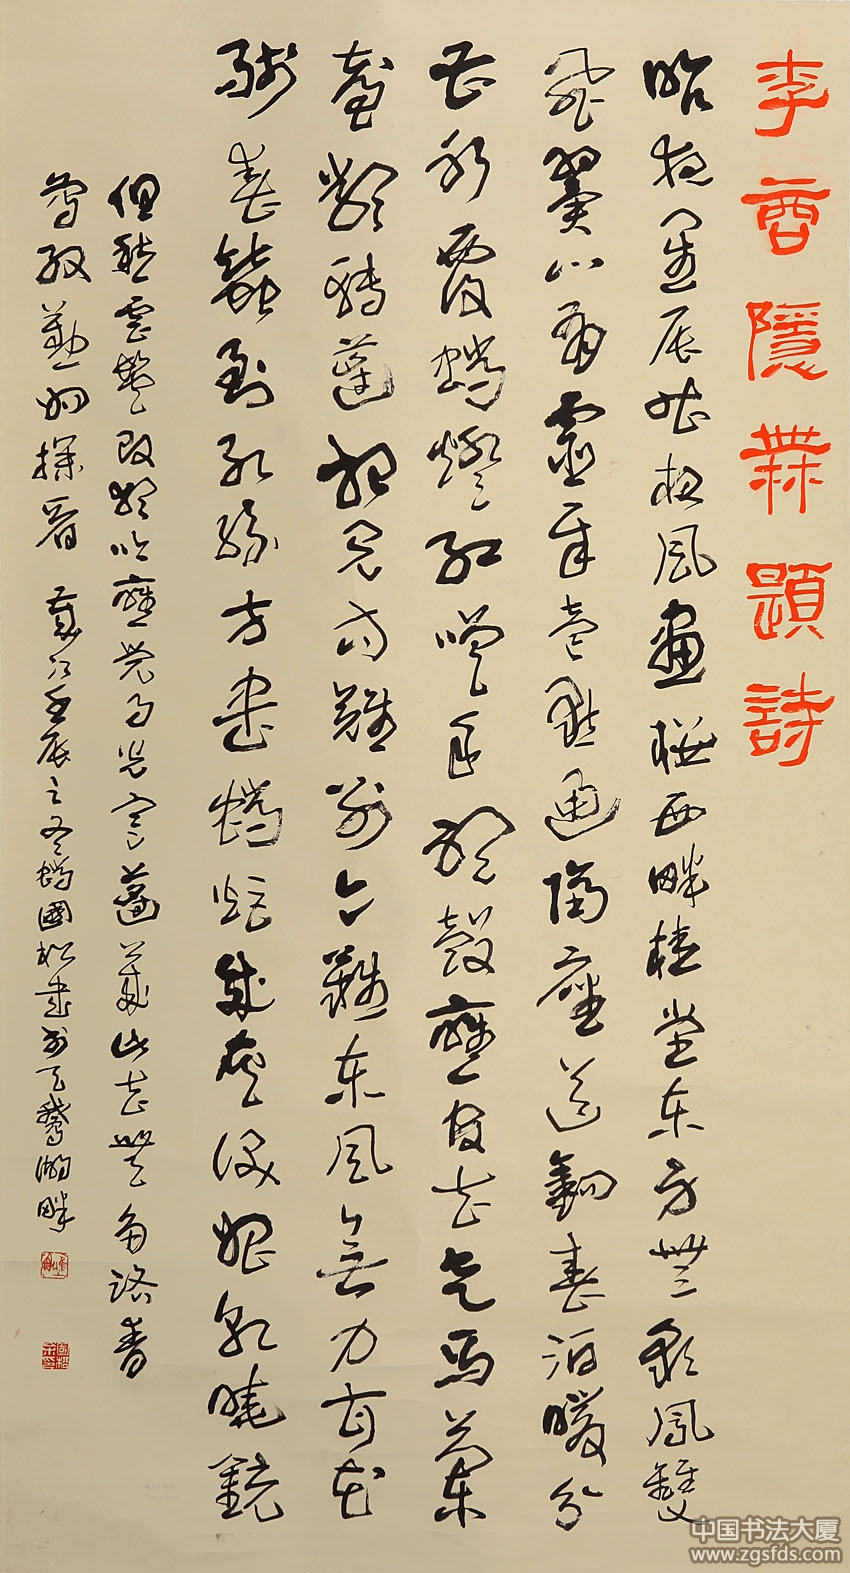 李商隱無題詩
昨夜星辰昨夜風畫樓西畔桂堂東身無彩鳳雙
飛翼心有靈犀壹點通隔座送鉤春酒暖分
曹射覆蠟燈紅嗟余聽鼓應官去走馬蘭
臺類轉蓬相見時難別亦難東風無力百花
殘春蠶到死絲方盡蠟炬成灰淚始乾曉鏡
但愁雲鬢改夜吟應覺月光寒蓬萊此去無多路青
鳥殷勤為探看 歲次壬辰之冬臘國松書於天鵝湖畔
中国书法大厦
www.zgsfds.com